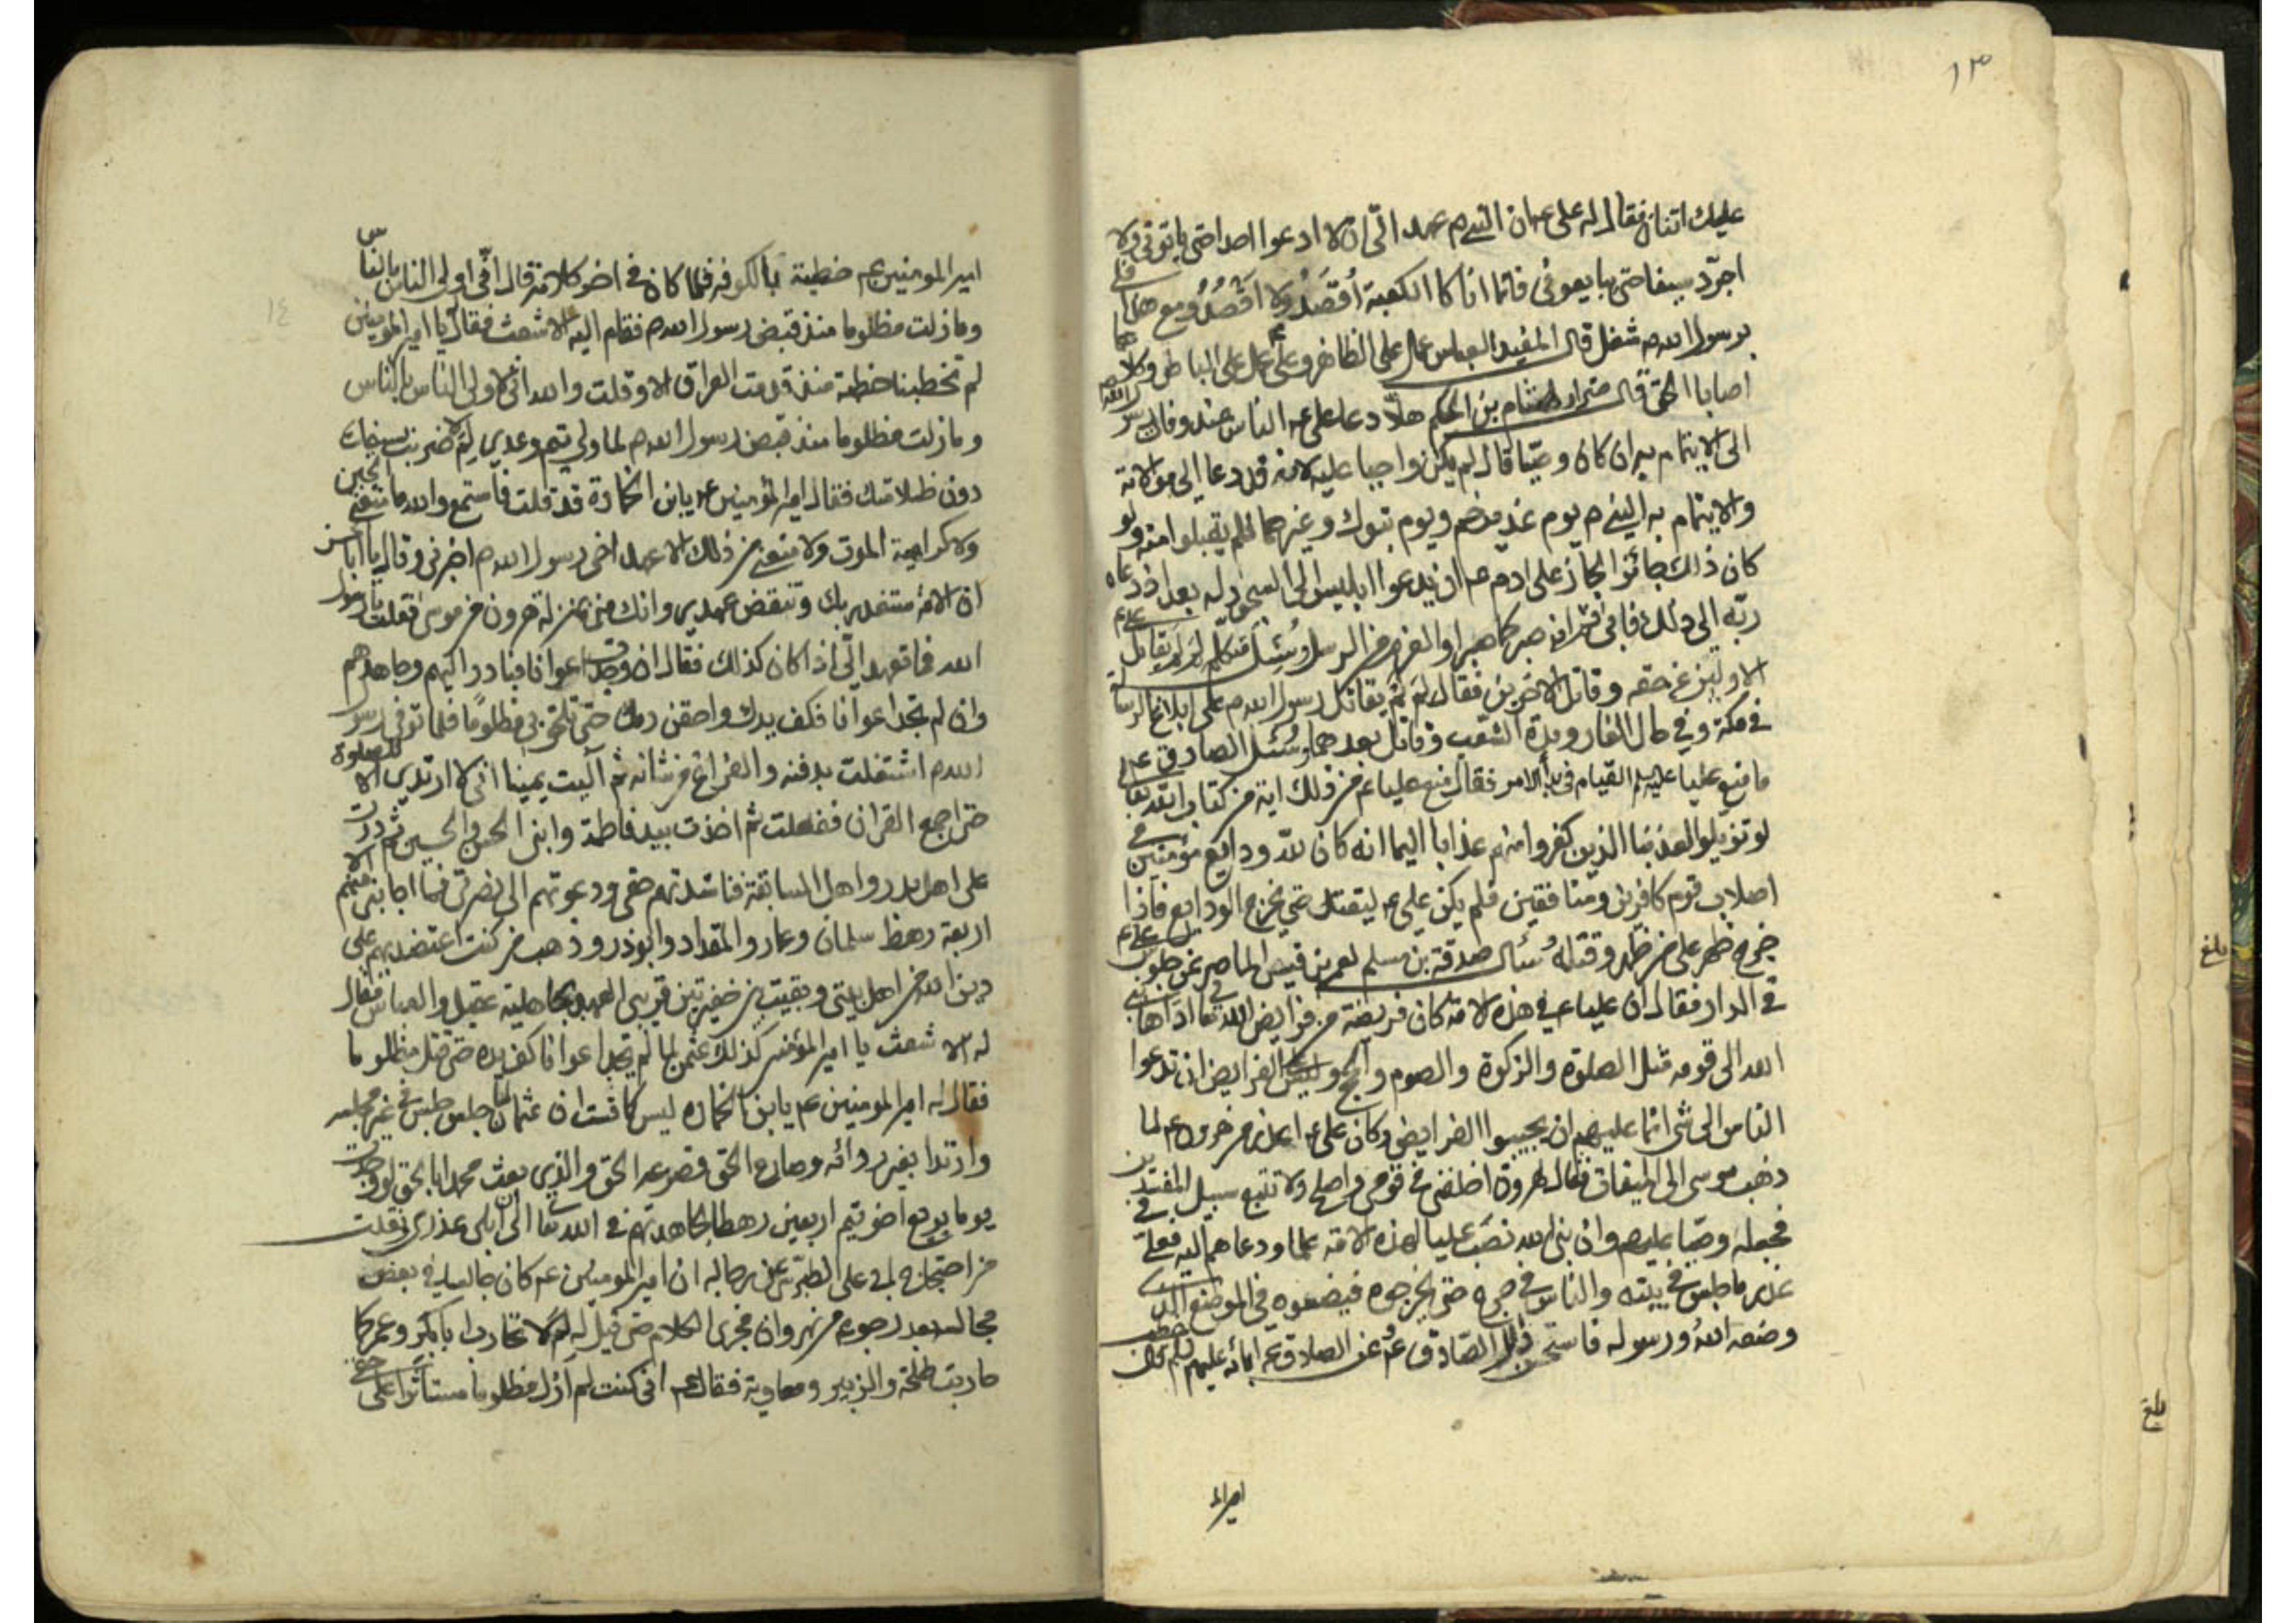 ١٣
عليك اثنان فقال له على ع ان النبي ص عهد الىّ ان لا ادعوا احدا حتى ياتونى ولا
اجرّد سيفا حتى يبايعونى فانما انا كالكعبة اُقصَدُ ولا اَقصُدُ ومع هذا فلى
برسول الله ص شغل قال المفيد العباس عمل على الظاهر وعلى ع عمل على الباطن وكلاهما
اصابا الحق قال ضرار لهشام بن الحكم هلّا دعا على ع الناس عند وفات رسول الله ص
الى الايتمام به ان كان وصيّا قال لم يكن واجبا عليه لانه قد دعا الى موالاته
والايتمام به النبي ص يوم غدير خم ويوم تبوك وغيرهما فلم يقبلوا منه ولو
كان ذلك جائزا لجاز على ادم ع ان يدعوا ابليس الى السجود له بعد اذ دعاه
ربّه الى ذلك فابى ثم انه صبر كما صبر اولو العزم من الرسل وسُئل متكلم لم لم يقاتل على ع
الاولين عن حقه وقاتل الاخرين فقال لم لم يقاتل رسول الله ص على ابلاغ الرسالة
فى مكة وفي حال الغار ومدة الشعب وقاتل بعدهما وسُئل الصادق ع
ما منع عليا عليه لم القيام فى بدأ الامر فقال منع عليا ع من ذلك اية من كتاب الله تعالى
لو تزيلوا لعذبنا الذين كفروا منهم عذابا اليما انه كان لله ودايع مؤمنين فى
اصلاب قوم كافرين ومنافقين فلم يكن على ع ليقتل حتى تخرج الودايع فاذا
خرج ظهر على من ظهر وقتله سُئال صدقة بن مسلم لعمر بن قيس الماصر عن جلوس على ع
في الدار فقال ان عليا ع في هذه الامة كان فريضة من فرايض الله تعا ادّاها نبي
الله الى قومه مثل الصلوة والزكوة والصوم والحج وليس على الفرايض ان تدعوا
الناس الى شى انما عليهم ان يجيبوا الفرايض وكان على ع اعذر من هرون ع لما
ذهب موسى الى الميقات فقال لهرون اخلفنى فى قومى واصلح ولا تتبع سبيل المفسدين
فجعله وصيّا عليهم وان نبى الله نصَب عليا لهذه الامة علما ودعاهم اليه فعلى فى
عذر ما جلس فى بيته والناس في حرج حتى يخرجوه فيضعوه في الموضع الذى
وضعه اللهُ ورسوله فاستحسن ذلك الصّادق ع عن الصادق عن ابائه عليهم خطب
امير الم
١٤
امير المومنين ع خطبة بالكوفه فلما كان فى اخر كلامه قال انّى اولى الناس بالناس
وما زلت مظلوما منذ قبض رسول الله ص فقام اليه الاشعث فقال يا امير المومنين
لم تخطبنا خطبة منذ قدمت العراق الا وقلت والله انى لاولى الناس بالناس
وما زلت مظلوما منذ قبض رسول الله ص لما ولى تيم وعدى لم لا ضربت بسيفك
دون ظلامتك فقال امير المؤمنين ع يابن الخمارة قد قلت فاستمع والله ما منعنى الجبن
ولا كراهية الموت ولا منعنى من ذلك الا عهد اخى رسول الله ص اخبرنى وقال يا ابا الحسن
ان الامة ستغدر بك وتنقض عهدى وانك منى بمنزلة هرون من موسى فقلت يا رسول
الله فما تعهد الىّ اذا كان كذلك فقال ان وجدت اعوانا فبادر اليهم وجاهدهم
وان لم تجد اعوانا فكف يدك واحقن دمك حتى تلحق بى مظلومًا فلما توفى رسول
الله ص اشتغلت بدفنه والفراغ من شانه ثم آليت يمينا انى لا ارتدى الا للصلوة
حتى اجمع القران ففعلت ثم اخذت بيد فاطمة وابنى الحسن والحسين ثم درت
على اهل بدر واهل السابقة فناشدتهم حقى ودعوتهم الى نصرتى فما اجابنى منهم الا
اربعة رهط سلمان وعمار والمقداد وابوذر وذهب من كنت اعتضد بهم على
دين الله من اهل بيتى وبقيت بين خفيرتين قريبى العهد بجاهلية عقيل والعباس فقال
له الاشعث يا امير المؤمنين كذلك عثمن لما لم يجد اعوانا كف يده حتى قتل مظلوما
فقال له امير المومنين ع يابن الخماره ليس كما قست ان عثمان لما جلس جلس فى غير مجلسه
وارتدا بغير ردائه وصارع الحق فصرعه الحق والذى بعث محمدا بالحق لو وجدت
يوما بويع اخو تيم اربعين رهطا لجاهدتهم فى الله تعا الى ان ابلى عذرى نقلت
من احتجاج ابى على الطبرسى عن رجاله ان امير المومنين ع كان جالسا فى بعض
مجالسه بعد رجوعه من نهروان فجرى الكلام حتى قيل له لم لا تحارب ابابكر وعمر كما
حاربت طلحة والزبير ومعاوية فقال ع انى كنت لم ازل مظلوما مستأثرا على حقى
بلغ
بلغ